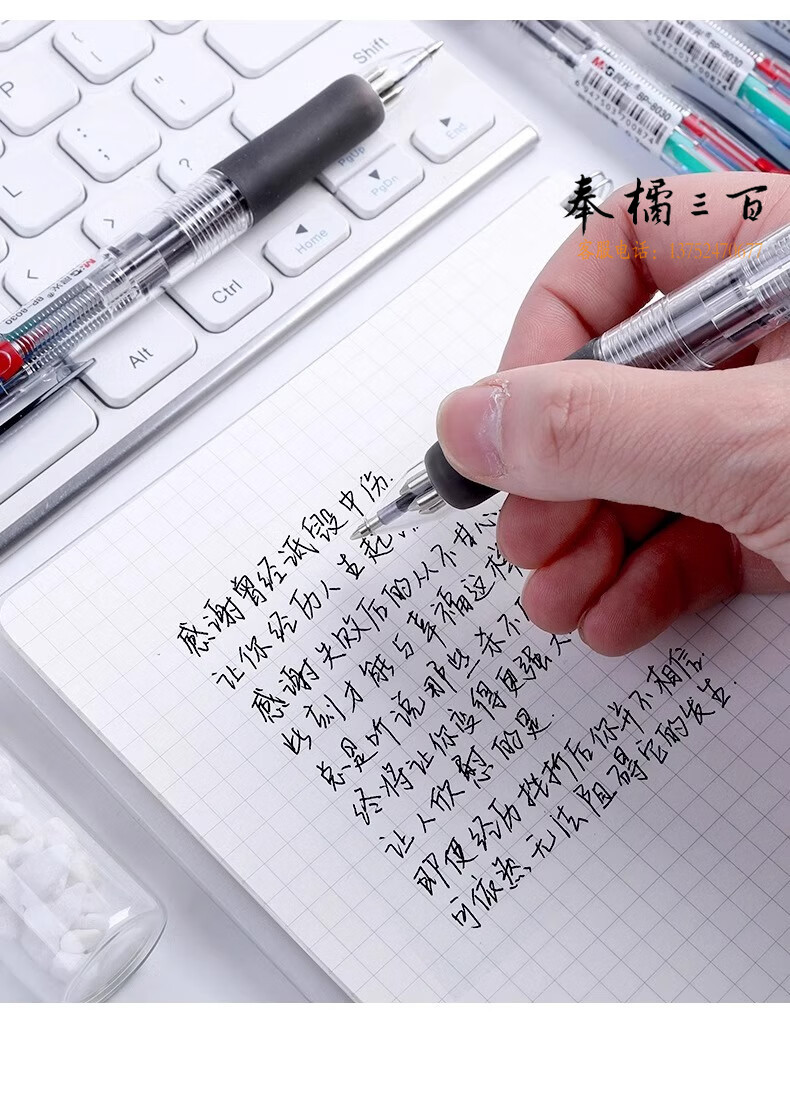 Shift
P
L
: ;
? /
>
< ,
PgUp
PgDn
End
Home
Ctrl
Alt
M&G 晨光 BP-8030
6947503700874
BP-8030
6947503700874
M&G 晨光 BP-8030
奉橘三百
客服电话:
感谢曾经诋毁中伤.
让你经历人生起
感谢失败后的从不甘心
此刻才能与幸福这样
总是听说那些杀不
终将让你变得更强大
让人欣慰的是.
即便经历挫折后你并不相信.
可依然无法阻碍它的发生.